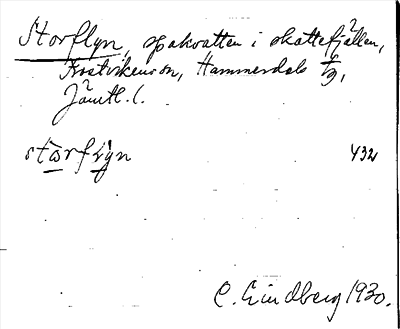 Storflyn, spakvatten i skattefjällen,
Frostvikens sn, Hammerdals tg,
Jämtl. l.
storflyn 432
C. Lindberg 1930.